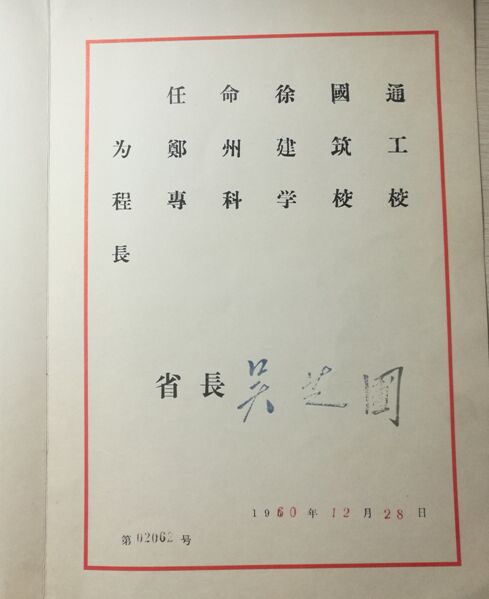 任命徐國通
为鄭州建筑工
程專科学校校
長
省長 吴芝圃
1960年12月28日
第02062号